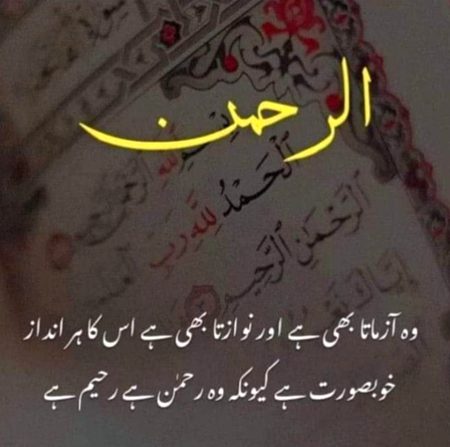 الرحمن
بِسْمِ ٱللَّهِ ٱلرَّحْمَٰنِ
ٱلْحَمْدُ لِلَّهِ رَبِّ
ٱلرَّحْمَٰنِ ٱلرَّحِيمِ
إِيَّاكَ
وہ آزماتا بھی ہے اور نوازتا بھی ہے اس کا ہر انداز
خوبصورت ہے کیونکہ وہ رحمٰن ہے رحیم ہے